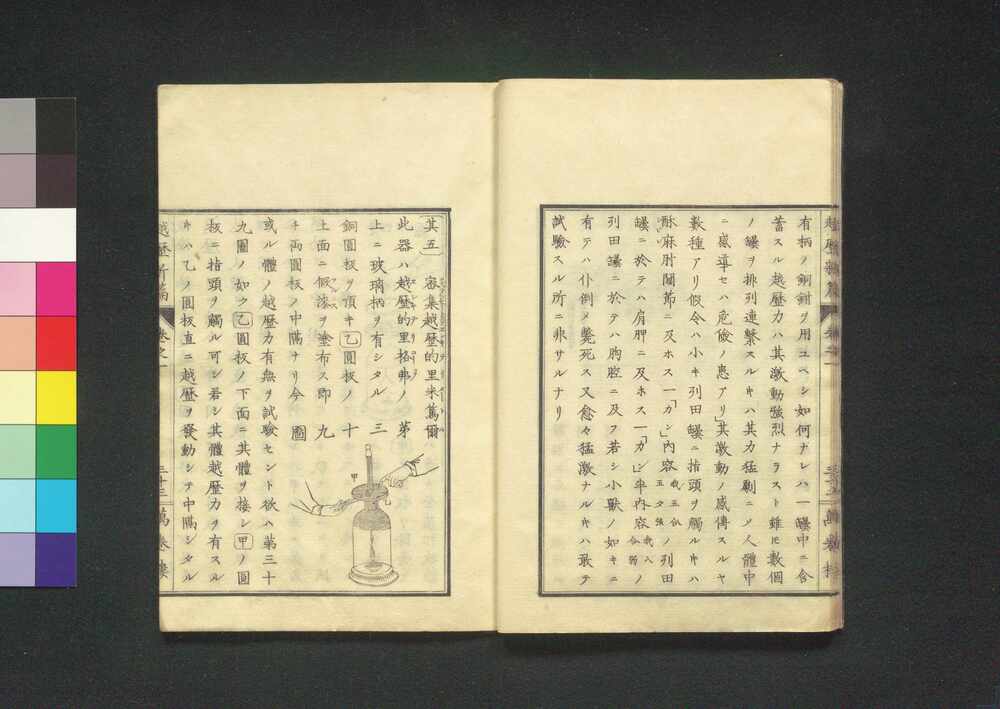 有柄ノ銅鉗ヲ用ユベシ如何ナレハ一罎中ニ含
蓄スル越歴力ハ其激動強烈ナラスト雖𪜈數個
ノ罎ヲ排列連繫スルキハ其力猛劇ニノ人體中
ニ感導セハ危險ノ患アリ其激動ノ感傳スルヤ
數種アリ假令ハ小キ列田罎ニ指頭ヲ觸ルキハ
酥麻肘關節ニ及ホス一「カン」內容ノ列田
罎ニ於テハ肩胛ニ及ホス一「カン」半內容ノ
列田罎ニ於テハ胸腔ニ及フ若シ小獸ノ如キニ
有テハ仆倒メ斃死ス又愈々猛激ナルキハ最テ
試驗スル所ニ非サルナリ
越歴新篇
卷之一
三十三
萬卷樓
其五 密集越歴的里米篤爾
此器ハ越歴的里格弗ノ
上ニ玻璃柄ヲ有シタル
銅圓板ヲ頂キ乙圓板ノ
上面ニ假漆ヲ塗布ス即
チ両圓板ノ中隔ナリ今
第三十九圖
甲
或ル體ノ越歴力有無ヲ試驗セント欲ハ第三十
九圖ノ如ク乙圓板ノ下面ニ其體ヲ接シ甲ノ圓
板ニ指頭ヲ觸ル可シ若シ其體越歴力ヲ有スル
キハ乙ノ圓板直ニ越歴ヲ發動シテ中隔シタル